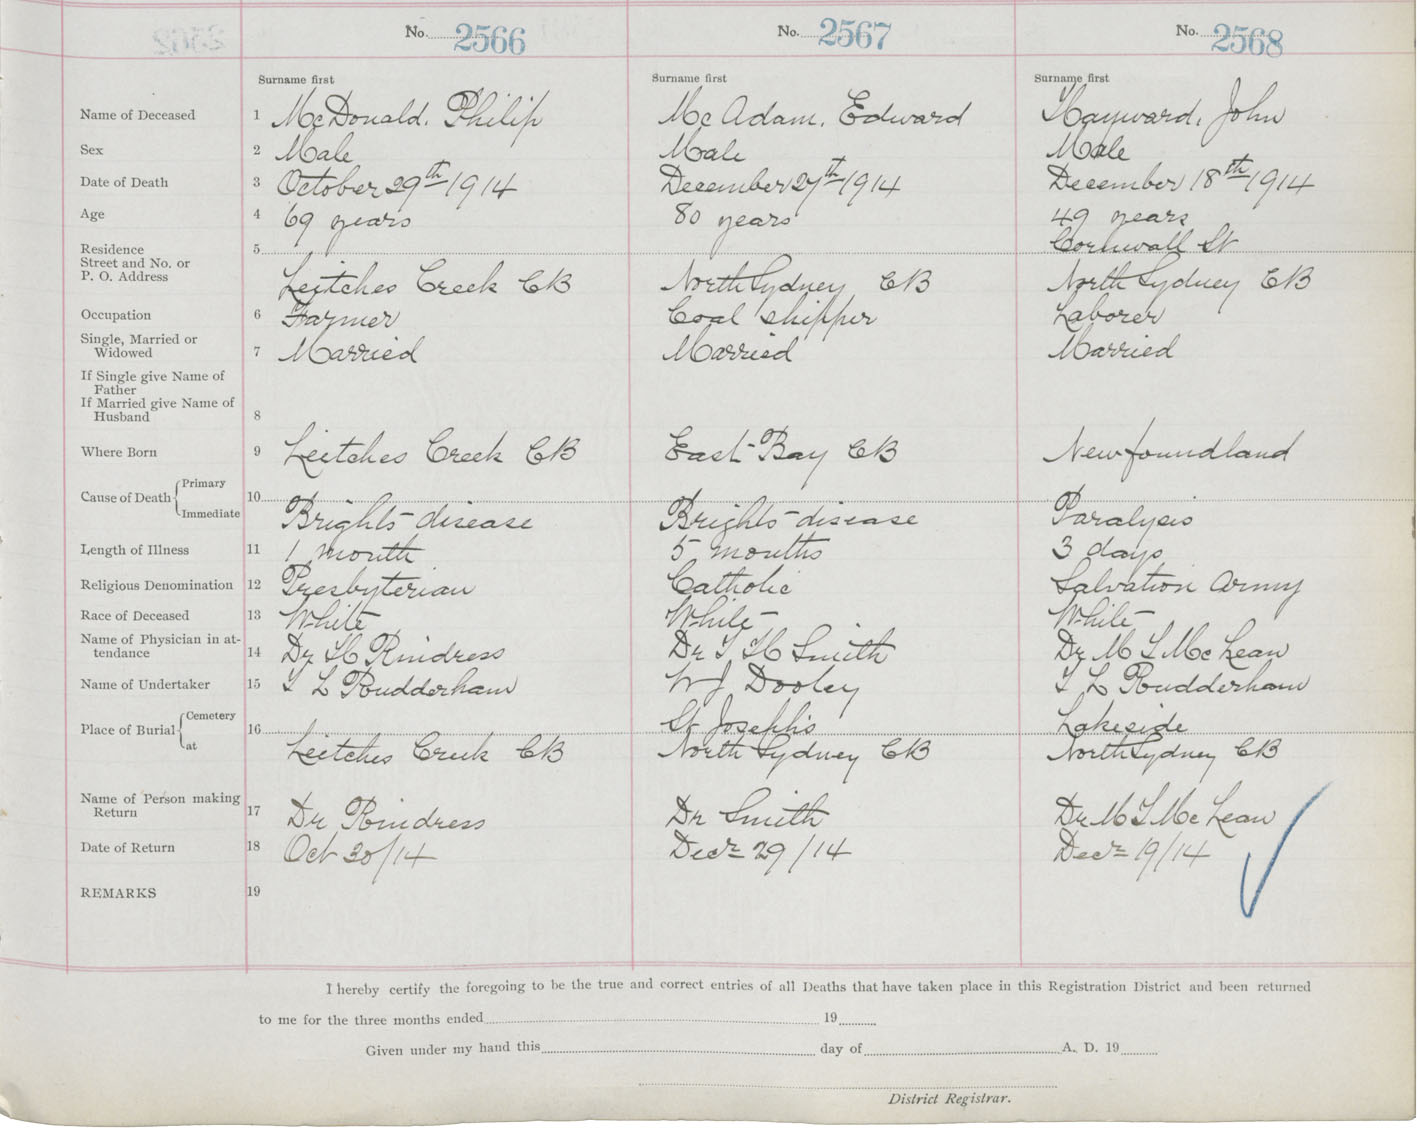 No. 2566 No. 2567 No. 2568
Surname first Surname first Surname first
Name of Deceased 1 McDonald, Philip McAdam, Edward Hayward, John
Sex 2 Male Male Male
Date of Death 3 October 29th 1914 December 27th 1914 December 18th 1914
Age 4 69 years 80 years 49 years
Residence 5 Cornwall St
Street and No. or
P. O. Address Leitches Creek CB North Sydney CB North Sydney CB
Occupation 6 Farmer Coal shipper Laborer
Single, Married or
Widowed 7 Married Married Married
If Single give Name of
Father
If Married give Name of
Husband 8
Where Born 9 Leitches Creek CB East Bay CB Newfoundland
Cause of Death Primary
10
Immediate Brights disease Brights disease Paralysis
Length of Illness 11 1 month 5 months 3 days
Religious Denomination 12 Presbyterian Catholic Salvation Army
Race of Deceased 13 White White White
Name of Physician in at-
tendance 14 Dr H Rindress Dr T H Smith Dr M T McLean
Name of Undertaker 15 T L Rudderham W J Dooley T L Rudderham
Place of Burial Cemetery 16 St Joseph's Lakeside
at Leitches Creek CB North Sydney CB North Sydney CB
Name of Person making
Return 17 Dr Rindress Dr Smith Dr M T McLean
Date of Return 18 Oct 30/14 Decr 29/14 Decr 19/14
REMARKS 19
I hereby certify the foregoing to be the true and correct entries of all Deaths that have taken place in this Registration District and been returned
to me for the three months ended 19
Given under my hand this day of A. D. 19
District Registrar.